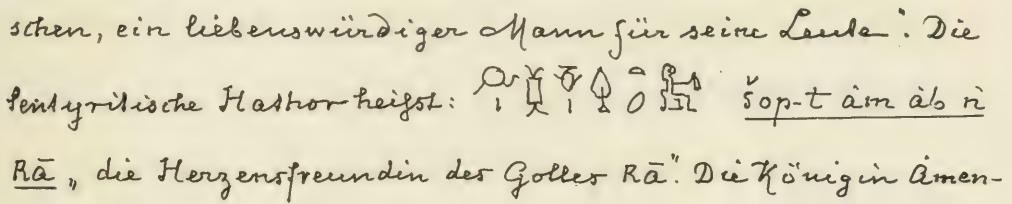 schen, ein liebenswürdiger Mann für seine Leute“. Die
tentyritische Hathor heifst: šop-t àm àb n
Rā „die Herzensfreundin des Gottes Rā“. Die Königin Àmen-